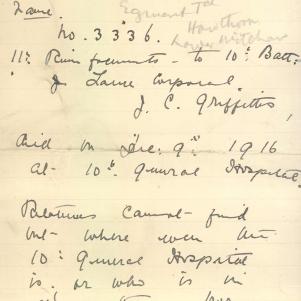 Egmont Tce
Hawthorn
Lower Mitcham
No. 3336.
11th Reinforcements - to 10th Batt:
Lance Corporal
J. C. Griffiths,
died on Dec: 9th 1916
at 10th General Hospital.
Relatives cannot find
out where was the
10th General Hospital
is or who is in